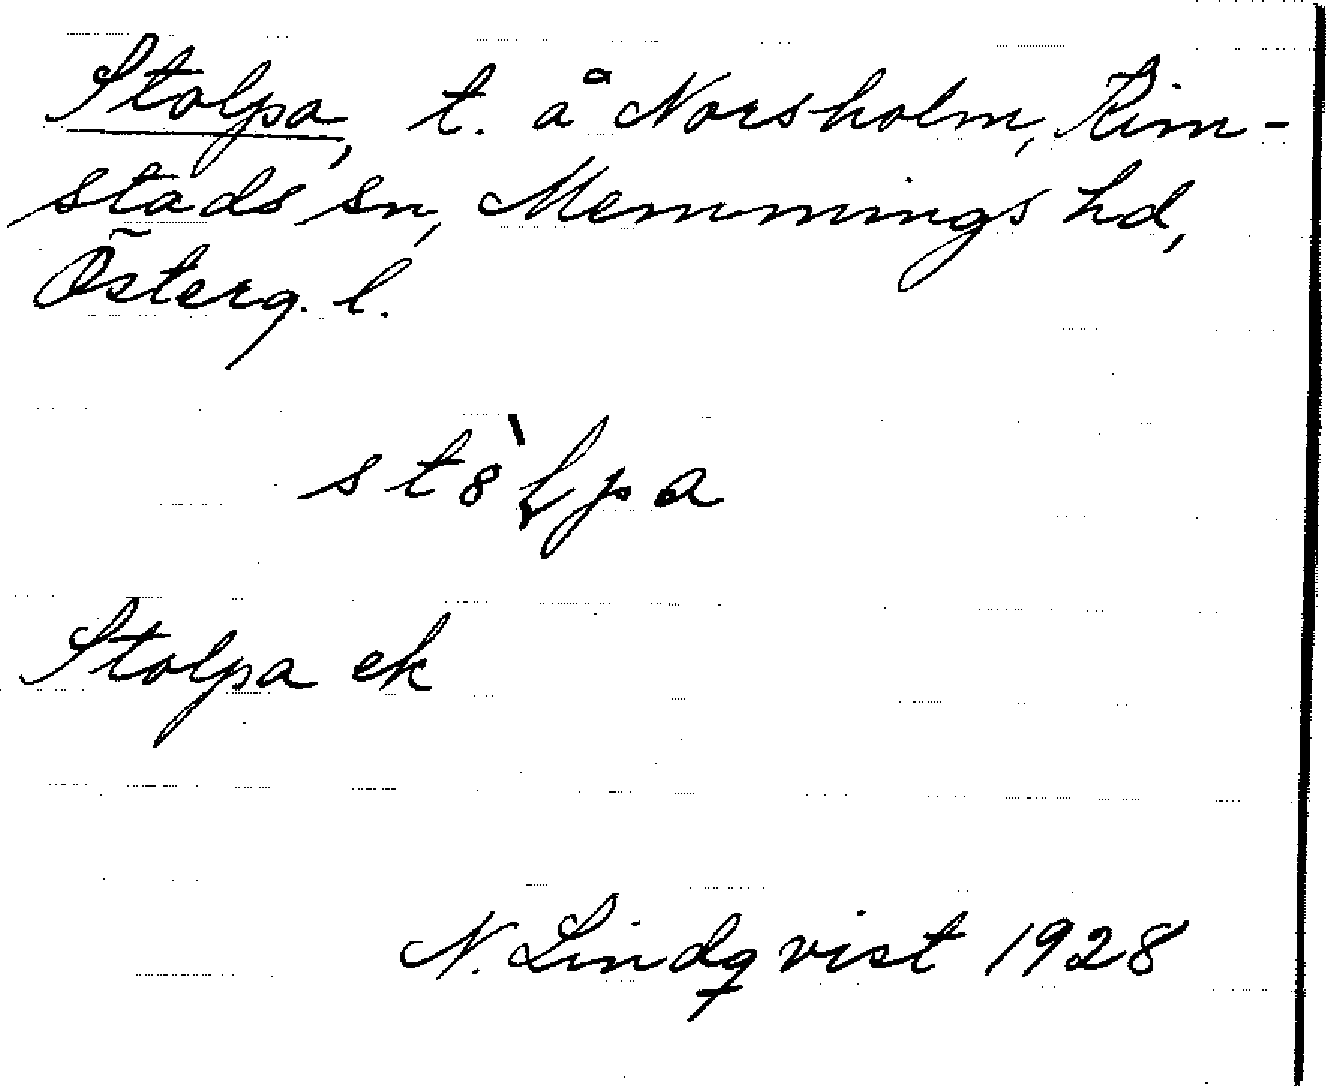 Stolpa, t. å Norsholm, Kim-
stads sn, Memmings hd,
Österg. l.
Stolpa ek
N. Lindqvist 1928